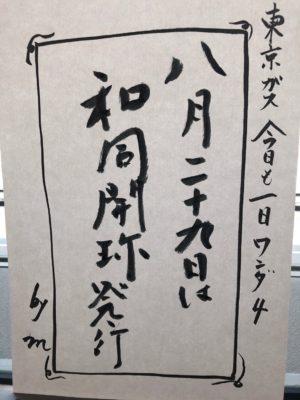 東京ガス 今日も一日ワンダ4
八月二十九日は
和同開珎発行
by m